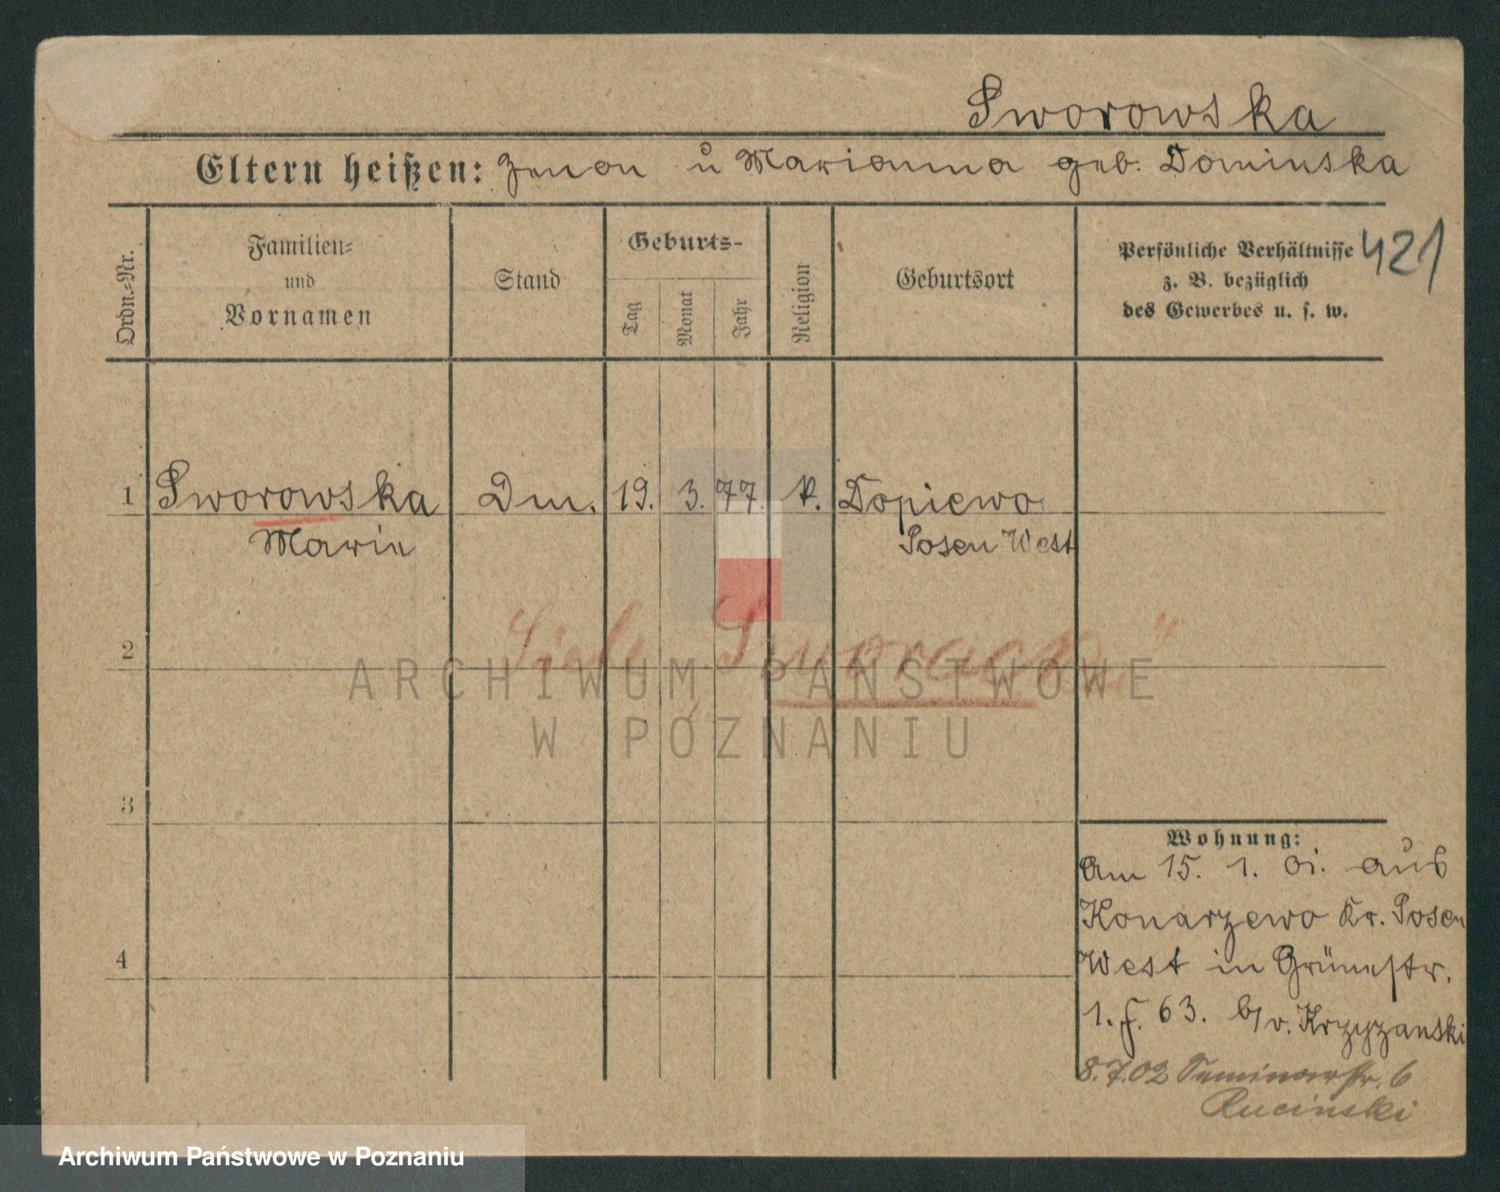 Sworowska
Eltern heißen: Zenon u Marianna geb. Dominska
Ordn.=Nr.
Familien=
und
Vornamen
Stand
Geburts-
Tag
Monat
Jahr
Religion
Geburtsort
Persönliche Verhältnisse
z. B. bezüglich
des Gewerbes u. s. w.
421
1 Sworowska Dm. 19. 3. 77. k. Dopiewo
Marie Posen West
2
Siehe "Sworack"
ARCHIWUM PAŃSTWOWE
W POZNANIU
3
4
Wohnung:
Am 15. 1. 01. aus
Konarzewo Kr. Posen
West in Grünestr.
1. f. 63. b/v. Krzyzanski
8.7.02 Seminarstr. 6
Rucinski
Archiwum Państwowe w Poznaniu